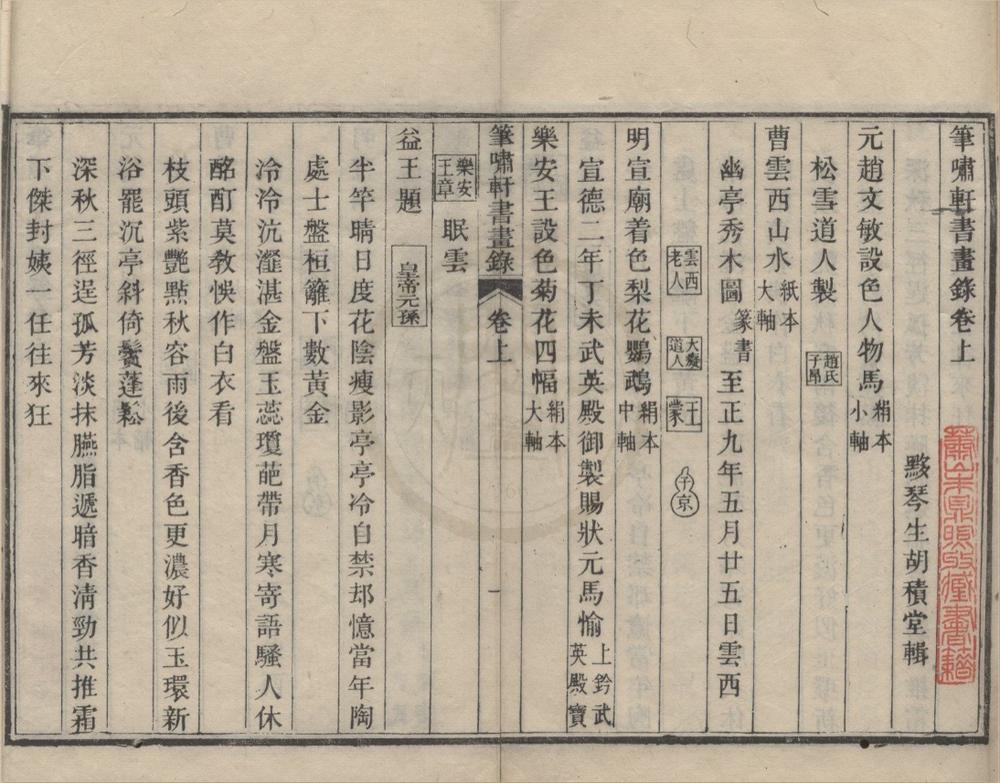 筆嘯軒書畫錄卷上
黟琴生胡積堂輯
元趙文敏設色人物馬 絹本小軸
松雪道人製 趙氏子昂
曹雲西山水 紙本大軸
幽亭秀木圖 篆書 至正九年五月廿五日雲西
雲西老人 大癡道人 王蒙 子京
明宣廟着色梨花鸚鵡 絹本中軸
宣德二年丁未武英殿御製賜狀元馬愉 上鈐武英殿寶
樂安王設色菊花四幅 絹本大軸
筆嘯軒書畫錄 卷上 一
樂安王章 眠雲
益王題 皇帝元孫
半竿晴日度花陰瘦影亭亭冷自禁却憶當年陶
處士盤桓籬下數黃金
冷冷沆瀣湛金盤玉蕊瓊葩帶月寒寄語騷人休
酩酊莫教悞作白衣看
枝頭紫艷點秋容雨後含香色更濃好似玉環新
浴罷沉亭斜倚鬢蓬鬆
深秋三徑逞孤芳淡抹臙脂遞暗香清勁共推霜
下傑封姨一任往來狂